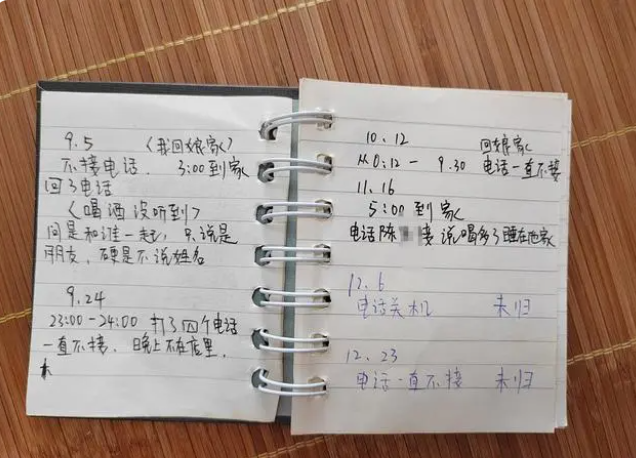 9.5 （我回娘家）
不接电话. 3:00到家
回了电话
〈喝酒没听到〉
问是和谁一起, 只说是
朋友, 硬是不说姓名
9.24
23:00-24:00 打了四个电话
一直不接. 晚上不在店里.
10.12 回娘家
从0:12 - 9.30 电话一直不接
11.16
5:00到家
电话陈 接 说喝多了睡在他家
12.6
电话关机 未归
12.23
电话一直不接 未归